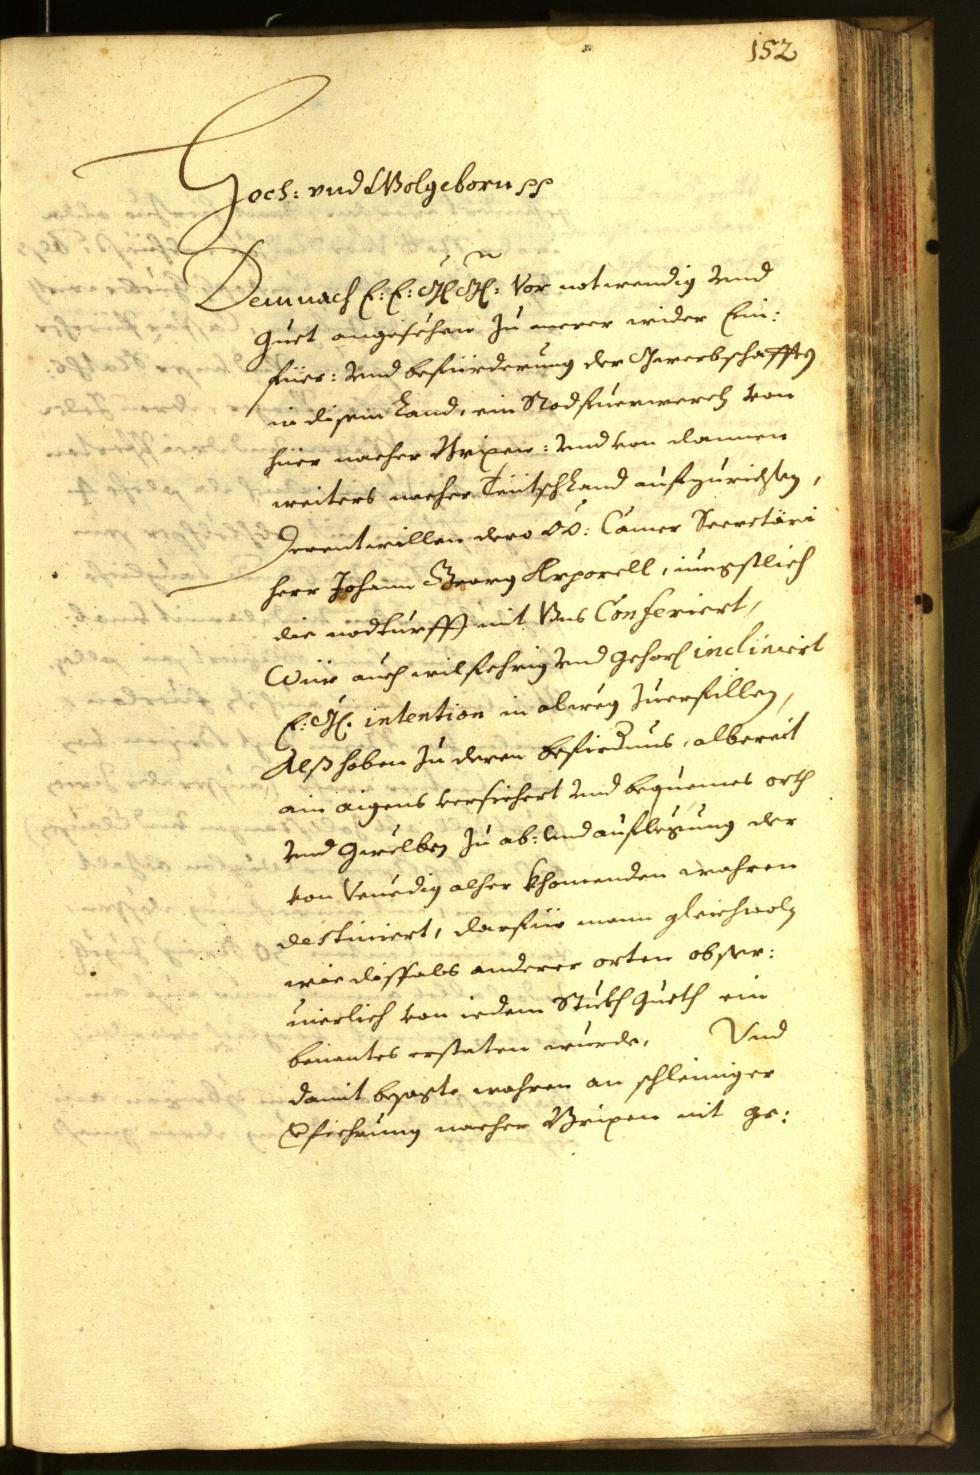 152
Hoch: vnd Wolgeborn
Demnach E: E: Gl Gl: vor notwendig vnd
guet angesehen zu merer wider Ein:
füer: vnd befürderung der Gewerbschafften
in disem Land, ein Rodfuerwerch von
hier nacher Brixen: vnd von dannen
weiters nacher Teütschland aufzurichten,
Derentwillen dero OÖ: Camer Secretari
herr Johann Georg Arporell, iüngstlich
die nodturfft mit Vns Conferiert,
Wür auch wilfehrig vnd gehors incliniert
E: Gl. intention in alweg zuerfüllen,
Alß haben zu deren befirdnus, albereit
ain aigens versichert vnd bequemes orth
vnd gwelben zu ab: vnd auflegung der
von Venedig alher khomenden wahren
destiniert, darfür mann gleichwoln
wie dissfals anderer orten obser:
uierlich von iedem Stukh gueth ein
benentes erstaten würde. Vnd
damit besagte wahren an schleiniger
Verfiehrung nacher Brixen nit ge: